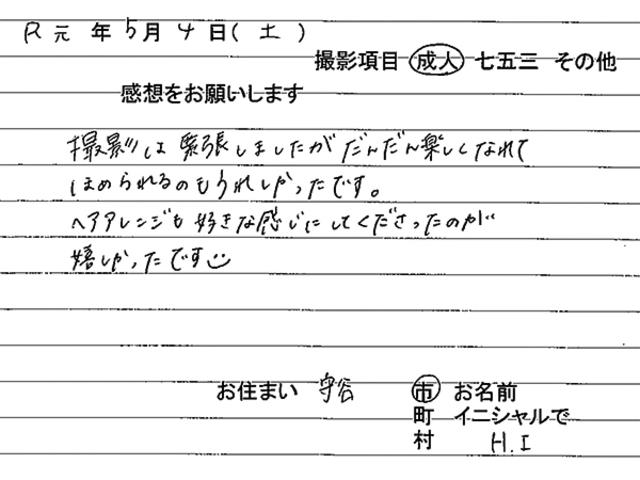 R元年5月4日(土)
撮影項目 成人 七五三 その他
感想をお願いします
撮影は緊張しましたがだんだん楽しくなれて
ほめられるのもうれしかったです。
ヘアアレンジも好きな感じにしてくださったのが
嬉しかったです
お住まい 守谷 市 お名前
町 イニシャルで
村 H.I